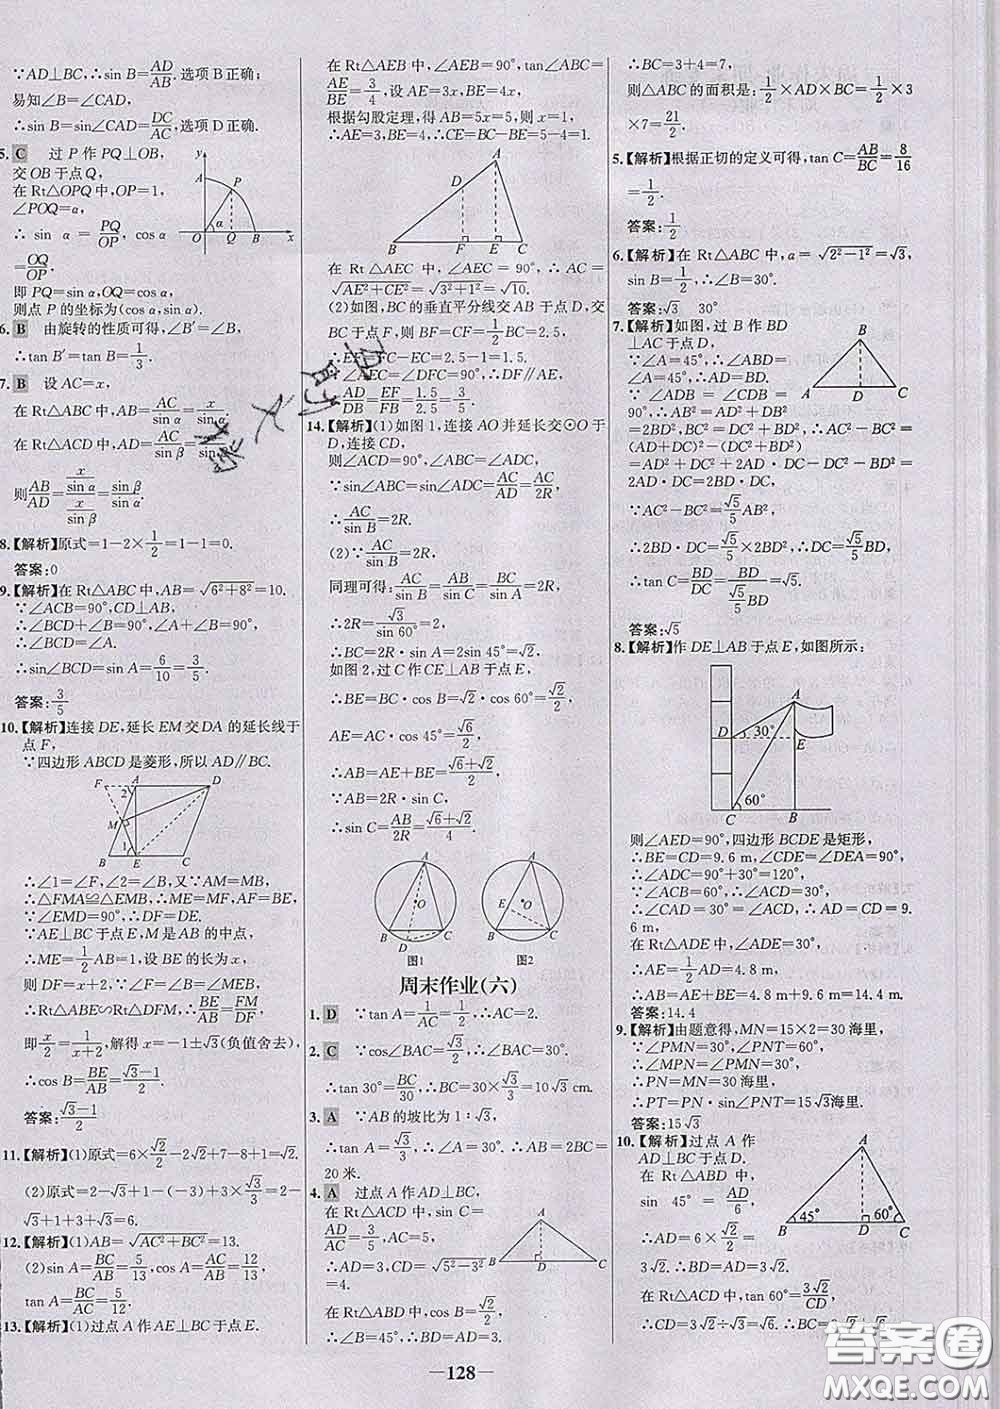 ∵AD⊥BC,∴sin B=AD/AB. 选项 B 正确;
易知∠B=∠CAD,
∴sin B=sin∠CAD=DC/AC,选项 D 正确.
5. C 过 P 作 PQ⊥OB,
交 OB 于点 Q,
在 Rt△OPQ 中,OP=1,
∠POQ=α,
∴ sin α=PQ/OP, cos α
=OQ/OP.
即 PQ=sin α,OQ=cos α,
则点 P 的坐标为(cos α,sin α).
A P O α Q B x y
6. B 由旋转的性质可得,∠B′=∠B,
∴tan B′=tan B=1/3.
7. B 设 AC=x,
在 Rt△ABC 中,AB=AC/sin α=x/sin α.
在 Rt△ACD 中,AD=AC/sin β=x/sin β,
则AB/AD=(x/sin α)/(x/sin β)=sin β/sin α.
8.【解析】原式=1-2×1/2=1-1=0.
答案:0
9.【解析】在 Rt△ABC 中,AB=√(6²+8²)=10.
∵∠ACB=90°,CD⊥AB,
∴∠BCD+∠B=90°,∠A+∠B=90°,
∴∠BCD=∠A.
∴sin∠BCD=sin A=6/10=3/5.
答案:3/5
10.【解析】连接 DE,延长 EM 交 DA 的延长线于
点 F,
∵四边形 ABCD 是菱形,所以 AD∥BC.
F A D 2 M 1 B E C
∴∠1=∠F,∠2=∠B,又∵AM=MB,
∴△FMA≌△EMB,∴ME=MF,AF=BE,
∵∠EMD=90°,∴DF=DE.
∵AE⊥BC于点E,M是AB的中点,
∴ME=1/2AB=1.设BE=x,
则 DF=x+2,∵∠F=∠B=∠MEB,
∴Rt△ABE∽Rt△DFM,∴BE/AB=FM/DF,
即x/2=1/(x+2),解得 x=-1±√3(负值舍去),
∴cos B=BE/AB=(√3-1)/2.
答案:(√3-1)/2
11.【解析】(1)原式=6×√2/2-2√2+7-8+1=√2.
(2)原式=2-√3+1-(-3)+3×√3/3=2-
√3+1+3+√3=6.
12.【解析】(1)AB=√(AC²+BC²)=13.
(2)sin A=BC/AB=5/13,cos A=AC/AB=12/13,
tan A=BC/AC=5/12.
13.【解析】(1)过点 A 作 AE⊥BC于点 E.
在 Rt△AEB 中,∠AEB=90°,tan∠ABC=
AE/BE=3/4,设 AE=3x,BE=4x,
根据勾股定理,得 AB=5x=5,则 x=1,
∴AE=3,BE=4,∴CE=BC-BE=5-4=1.
A D B F E C
在 Rt △AEC 中,∠AEC = 90°,∴ AC =
√(AE²+CE²)=√(3²+1²)=√10.
(2)如图,BC的垂直平分线交AB于点D,交
BC于点F,则 BF=CF=1/2BC=2.5,
∴EF=FC-EC=2.5-1=1.5.
∵∠AEC=∠DFC=90°,∴DF∥AE.
∴AD/DB=EF/FB=1.5/2.5=3/5.
14.【解析】(1)如图1,连接 AO 并延长交⊙O 于
D,连接 CD,
则∠ACD=90°,∠ABC=∠ADC,
∵sin∠ABC=sin∠ADC=AC/AD=AC/2R,
∴AC/sin B=2R.
(2)∵AC/sin B=2R,
同理可得:AC/sin B=AB/sin C=BC/sin A=2R,
∴2R=√3/sin 60°=2,
∴BC=2R·sin A=2sin 45°=√2,
如图 2,过 C 作CE⊥AB 于点E,
∴BE=BC·cos B=√2·cos 60°=√2/2,
AE=AC·cos 45°=√6/2,
∴AB=AE+BE=(√6+√2)/2,
∵AB=2R·sin C,
∴sin C=AB/2R=(√6+√2)/4.
A O B D C 图1
A O E B C 图2
周末作业(六)
1. D ∵tan A=1/AC=1/2,∴AC=2.
2. C ∵cos∠BAC=√3/2,∴∠BAC=30°.
∴tan 30°=BC/30,∴BC=30×√3/3=10√3 cm.
3. A ∵AB的坡比为 1∶√3,
∴tan A=√3/3,∴∠A=30°. ∴AB=2BC=
20 米.
4. A 过点A作AD⊥BC,
在 Rt△ACD 中,sin C=
AD/AC=3/5,
∴AD=3,∴CD=√(5²-3²)
=4.
A B D C
在 Rt△ABD 中,cos B=√2/2,
∴∠B=45°,∴BD=AD=3.
∴BC=3+4=7,
则△ABC 的面积是:1/2×AD×BC=1/2×3
×7=21/2.
5.【解析】根据正切的定义可得,tan C=AB/BC=8/16
=1/2.
答案:1/2
6.【解析】在 Rt△ABC 中,a=√(2²-1²)=√3,
sin B=1/2,∴∠B=30°.
答案:√3 30°
7.【解析】如图,过 B 作 BD
⊥AC 于点 D,
∵∠A=45°,∴∠ABD=
∠A=45°,∴AD=BD.
∵∠ADB=∠CDB=90°,
B A D C
∴AB²=AD²+BD²
=2BD²,BC²=DC²+BD²,∴AC²-BC²=
(AD+DC)²-(BD²+DC²)
=AD²+DC²+2AD·DC-BD²-DC²=
2AD·DC=2BD·DC,
∵AC²-BC²=√5/5AB²,
∴2BD·DC=√5/5×2BD²,∴DC=√5/5BD,
∴tan C=BD/DC=BD/(√5/5BD)=√5.
答案:√5
8.【解析】作 DE⊥AB于点E,如图所示:
A D 30° E 60° C B
则∠AED=90°,四边形BCDE是矩形,
∴BE=CD=9.6 m,∠CDE=∠DEA=90°,
∴∠ADC=90°+30°=120°,
∵∠ACB=60°,∴∠ACD=30°,
∴∠CAD=30°=∠ACD,∴AD=CD=9.
6 m,
在 Rt△ADE 中,∠ADE=30°,
∴AE=1/2AD=4.8 m,
∴AB=AE+BE=4.8 m+9.6 m=14.4 m.
答案:14.4
9.【解析】由题意得,MN=15×2=30 海里,
∵∠PMN=30°,∠PNT=60°,
∴∠MPN=∠PMN=30°,
∴PN=MN=30 海里,
∴PT=PN·sin∠PNT=15√3海里.
答案:15√3
10.【解析】过点 A 作
AD⊥BC于点 D.
在 Rt △ABD 中,
sin 45°=AD/AB=
AD/6,
∴AD=6×√2/2=
3√2. ∴AD=3√2.
A 45° 60° B D C
在 Rt△ACD 中,tan 60°=AD/CD=
3√2/CD,
∴CD=3√2÷√3=√6.
128
答案圈
MXQE.COM